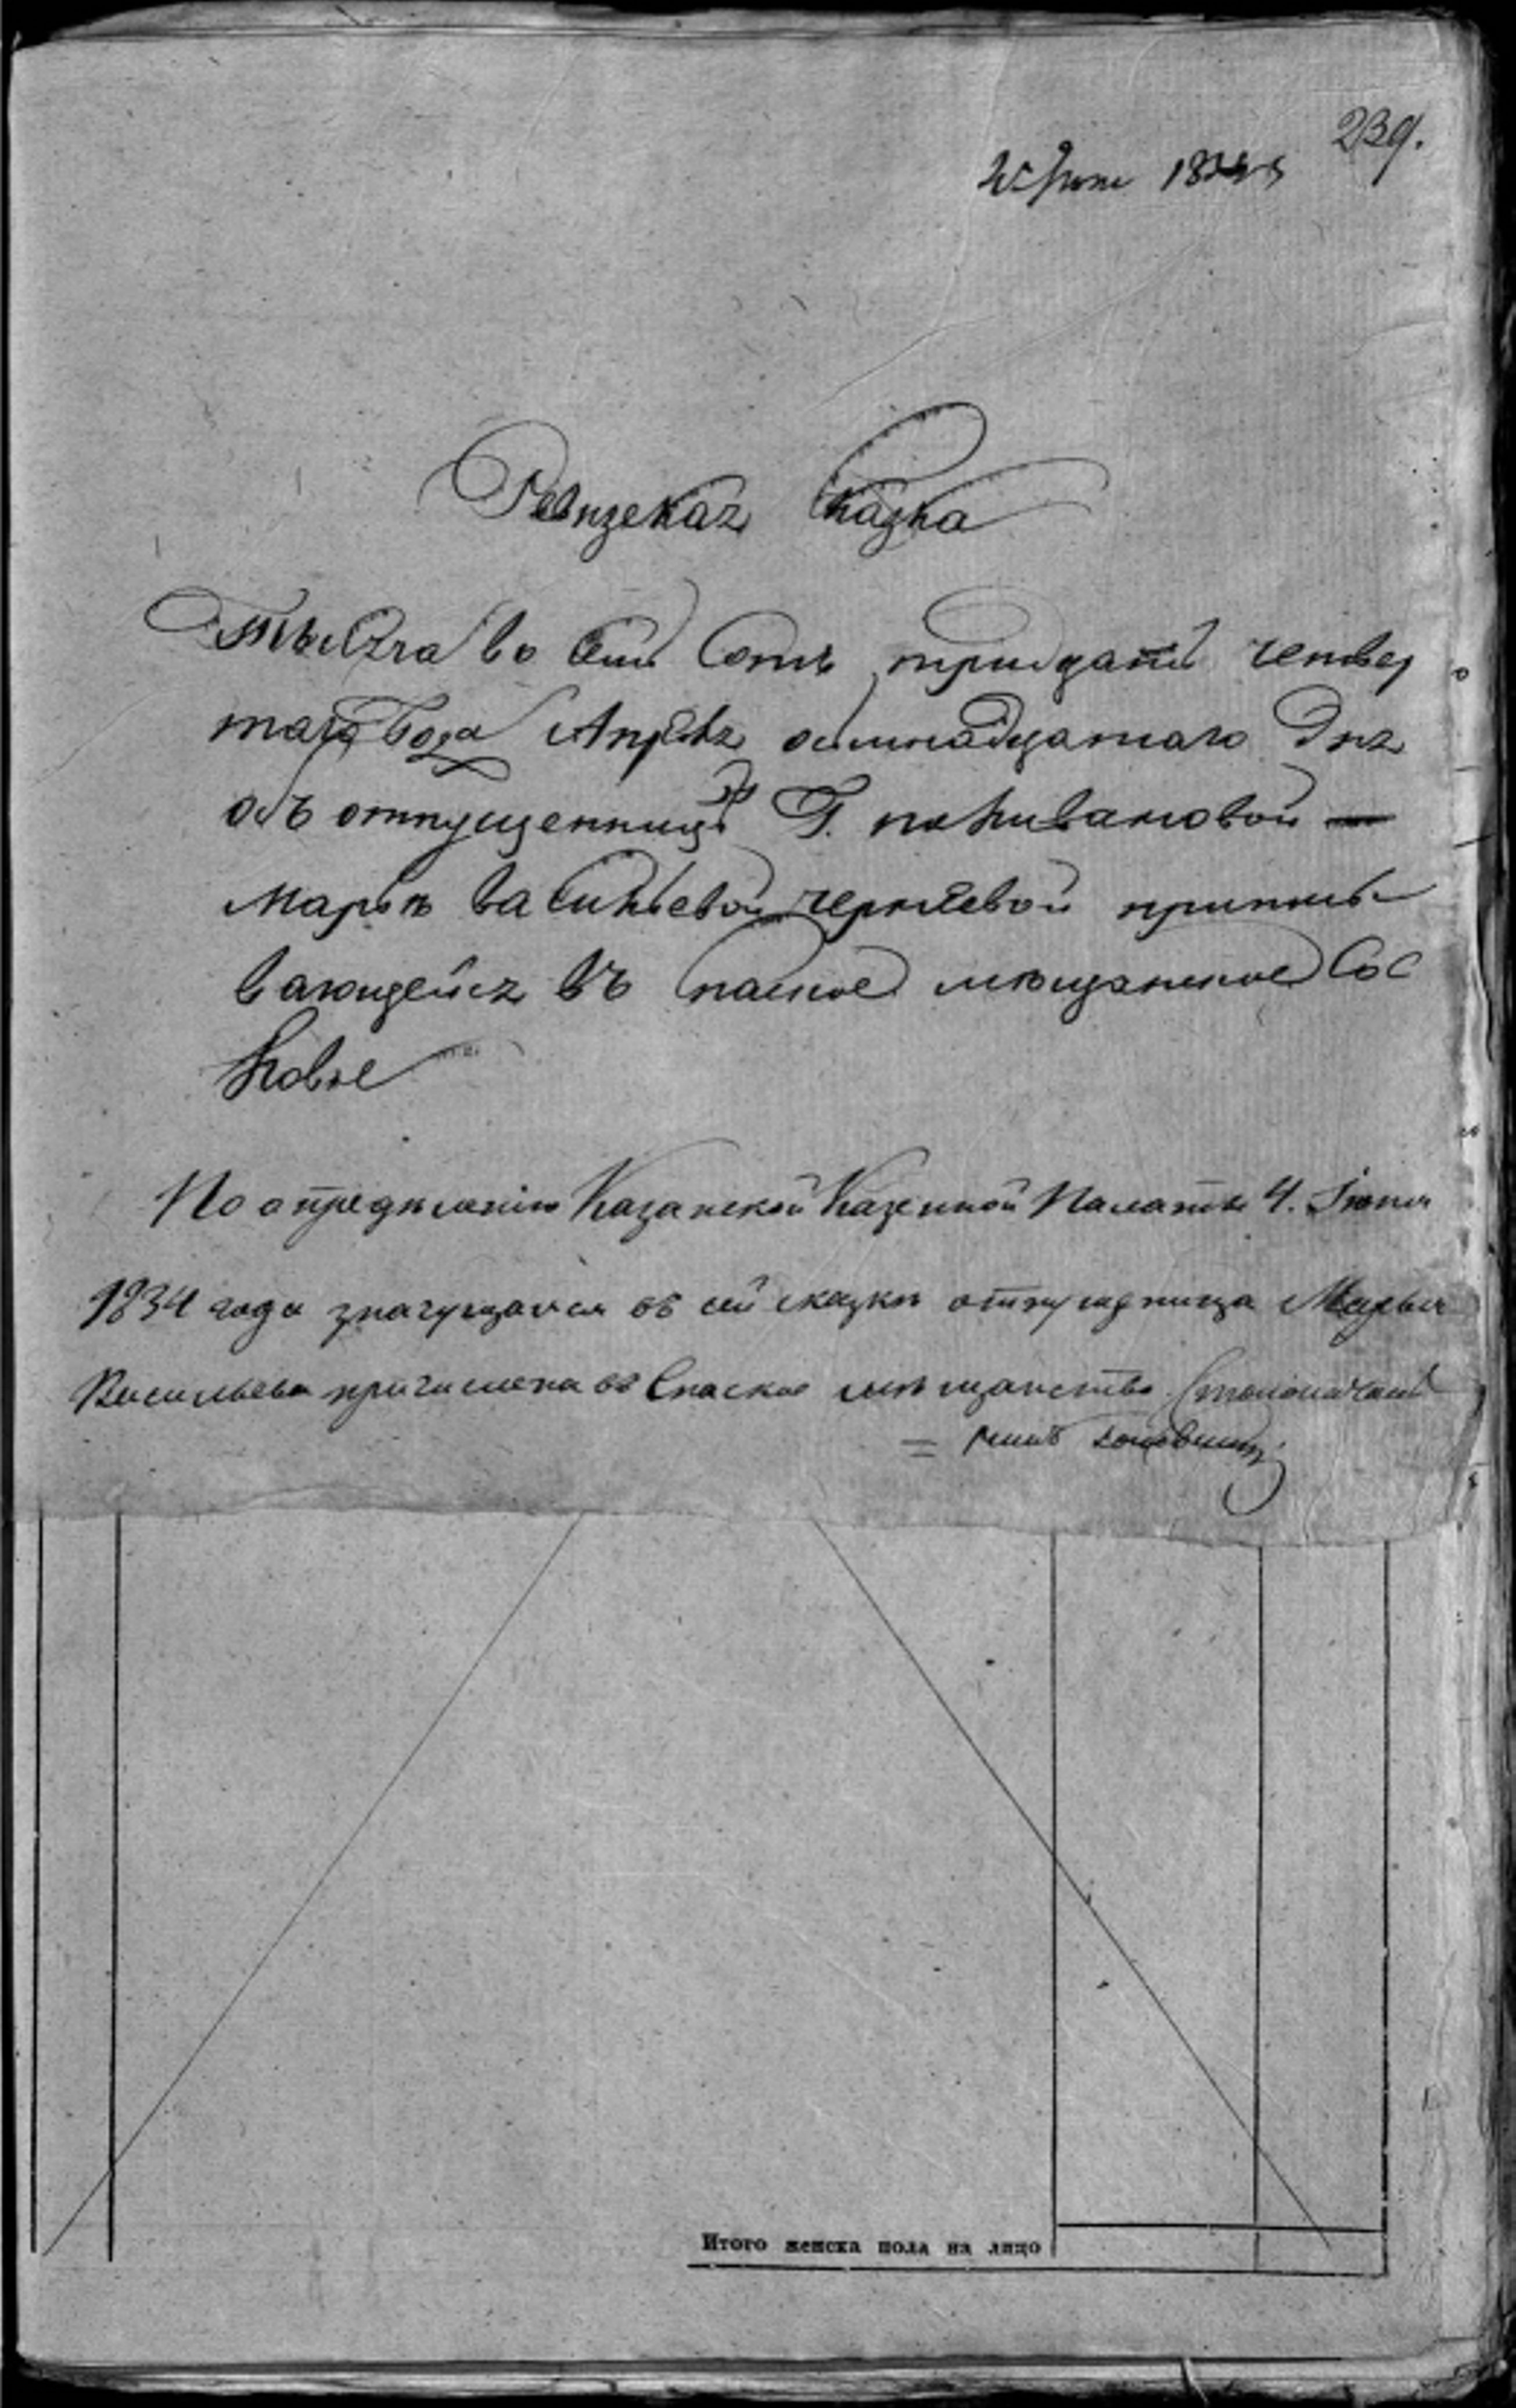 239.
Июня
Ревизская Сказка
Тысяча во семь Сотъ тридцать четвер
таго Года Апреля осмнадцатаго Дня
объ отпущенницѣ Г. поливановой
Марье васильевой черняевой приписы
вающейся въ спаское мещанское Сос
ловие
По определенію Казанской Казенной Палаты 4. Іюня
1834 года значущаяся въ сей сказкѣ отпущеница Марья
Васильева причислена въ Спаское мѣщанство Столоначаль
Итого женска пола на лицо